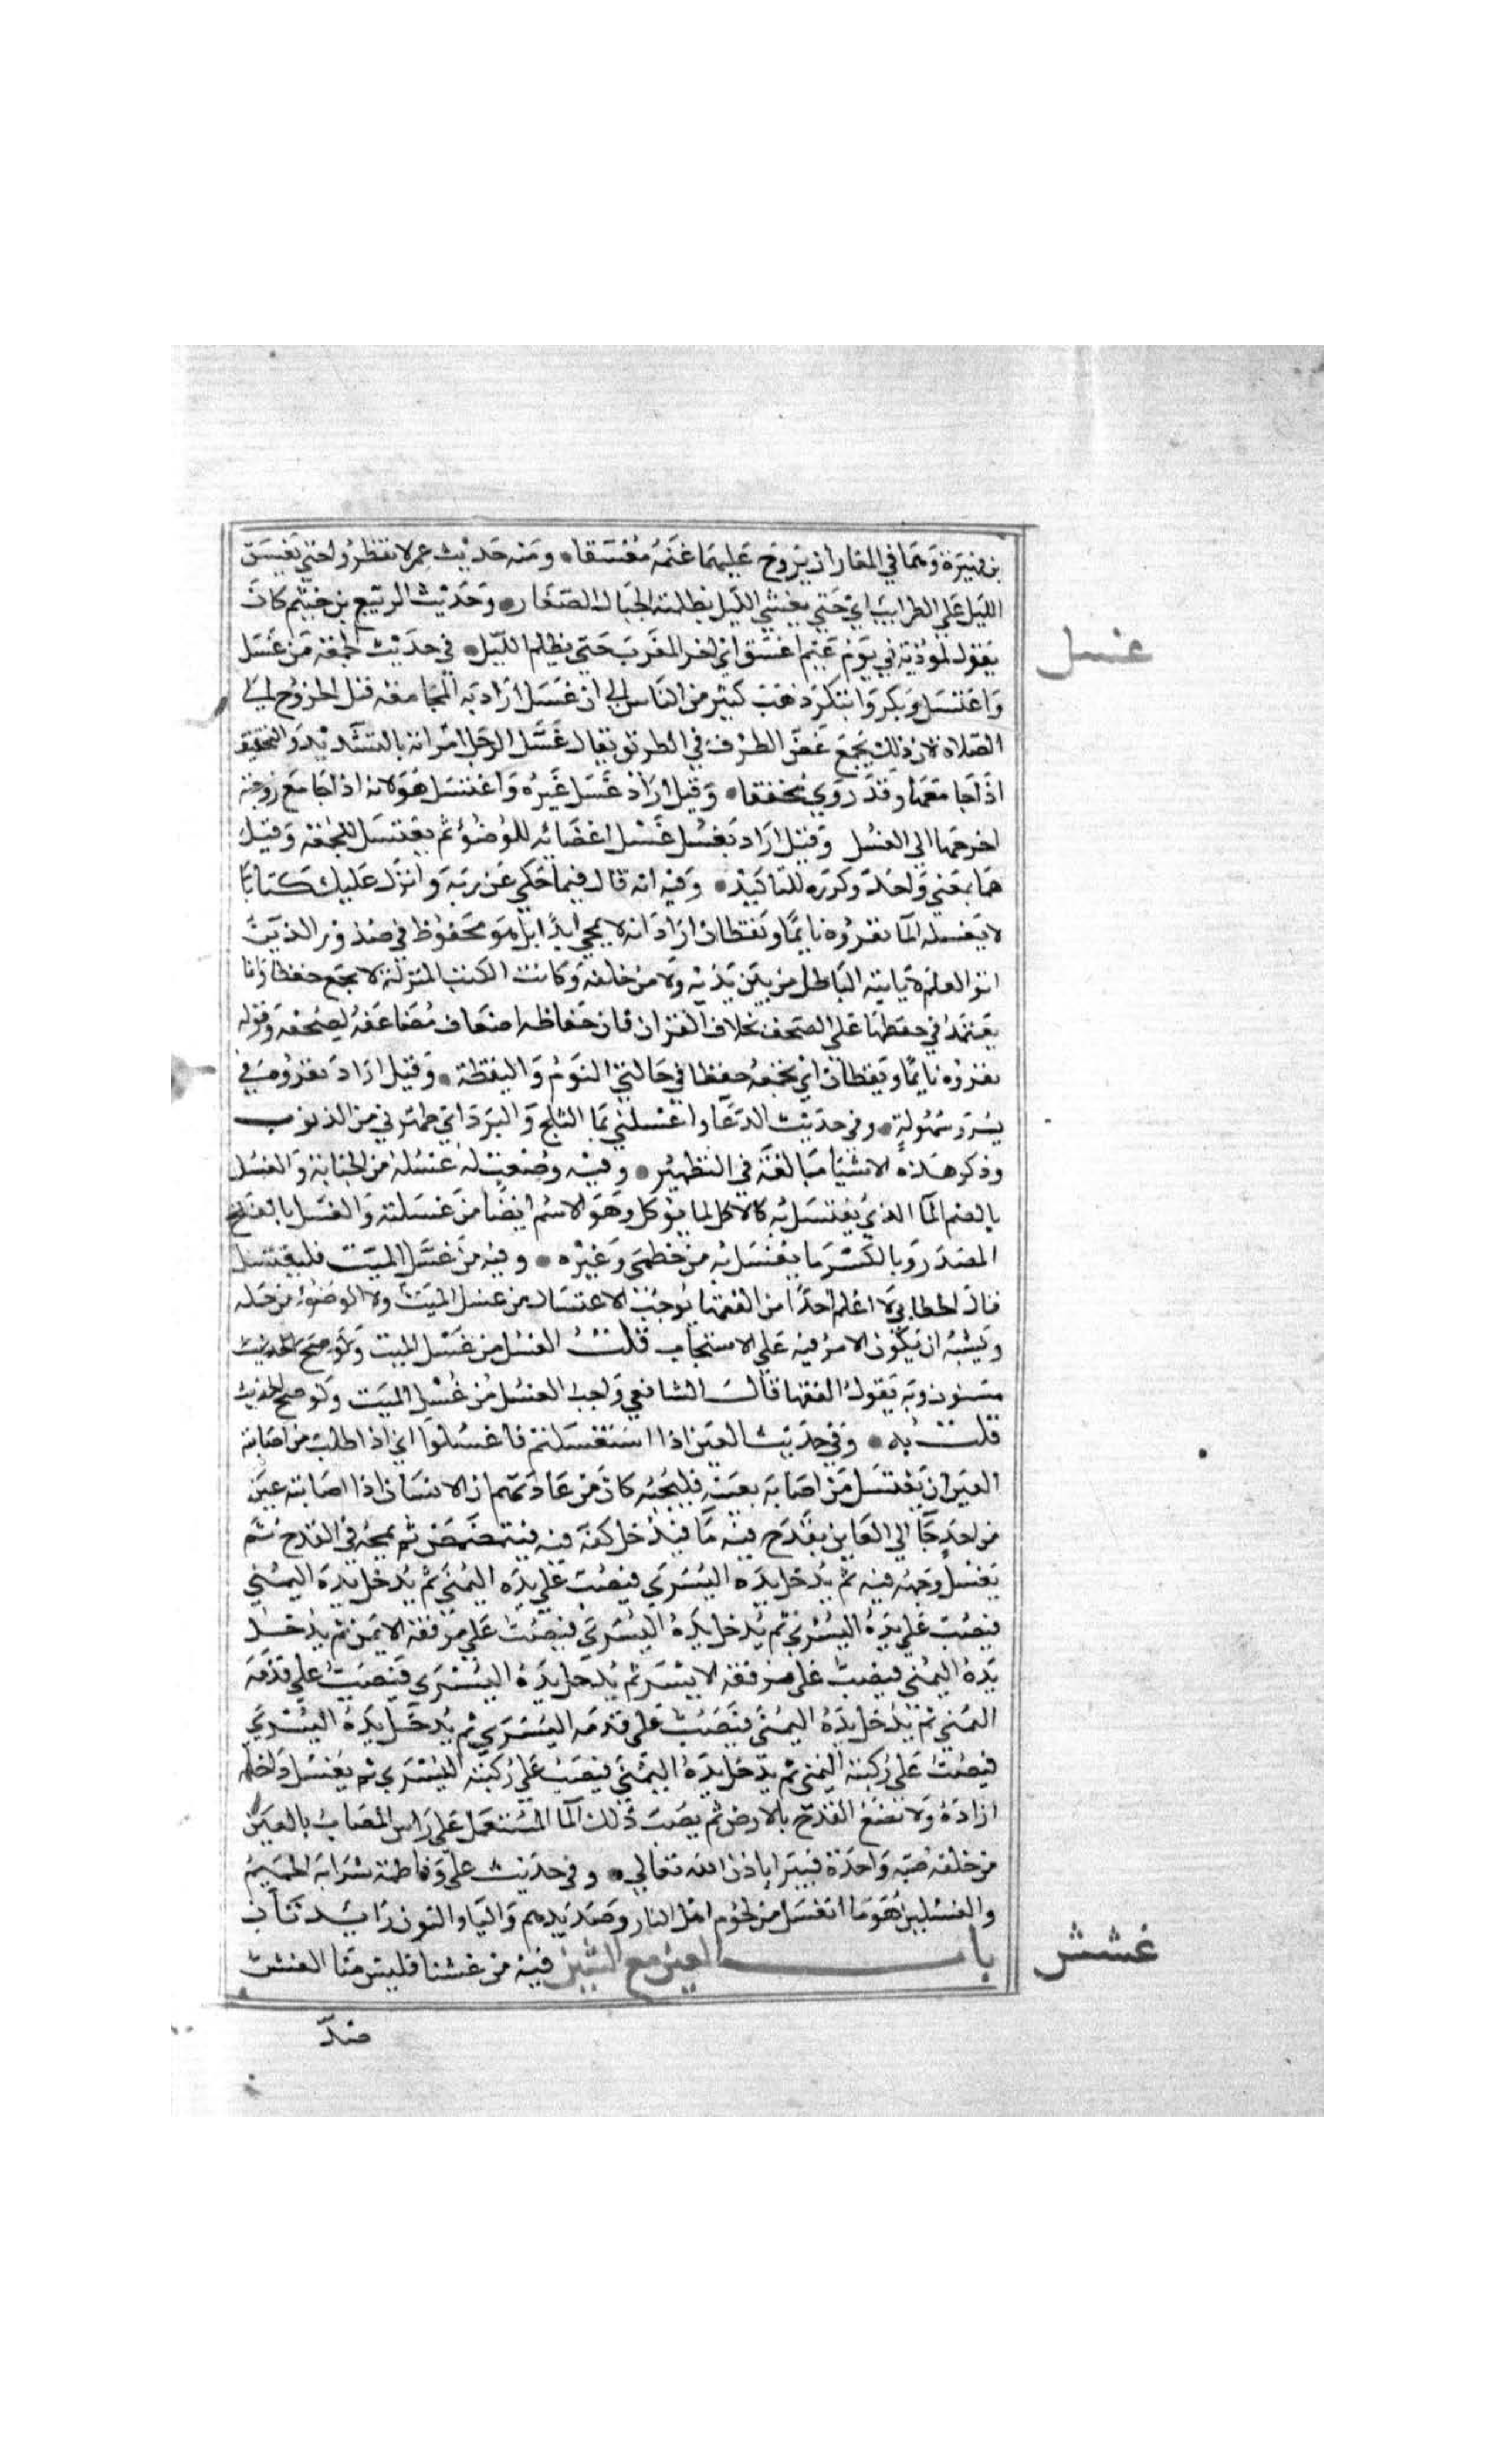 بن فهيرة وهما في الغار ان يروح عليهما غنمه مغسقا ومنه حديث عمر لا تفطروا حتي يغسق
الليل علي الظراب اي حتي يغشي الليل بظلمته الجبال الصغار وحديث الربيع بن خيثم كان
يقول لموذنه في يوم غيم اغسق اي اخر المغرب حتي يظلم الليل في حديث الجمعة من غسل
غسل
واغتسل وبكر وابتكر ذهب كثير من الناس الي ان غسل اراد به المجامعة قبل الخروج الي
الصلاة لان ذلك يجمع غض الطرف في الطريق يقال غسل الرجل امراته بالتشديد والتخفيف
اذا جامعها وقد روي مخففا وقيل اراد غسل غيره واغتسل هو لانه اذا جامع زوجته
احوجها الي الغسل وقيل اراد بغسل غسل اعضائه للوضوء ثم يغتسل للجمعة وقيل
هما بمعني واحد وكرره للتاكيد وفيه انه قال فيما حكي عن ربه وانزل عليك كتابا
لا يغسله الما تقروه نايما ويقظان اراد انه لا يمحي ابدا بل هو محفوظ في صدور الذين
اتو العلم لا ياتيه الباطل من بين يديه ولا من خلفه وكانت الكتب المنزلة لا تجمع حفظا وانما
يعتمد في حفظها علي الصحف بخلاف القران فان حفاظه اضعاف مضاعفة لصحفه وقوله
تقروه نايما ويقظان اي تجمعه حفظا في حالتي النوم واليقظة وقيل اراد تقروه في
يسر وسهولة وفي حديث الدعا واغسلني بما الثلج والبرد اي طهرني من الذنوب
وذكر هذه الاشيا مبالغة في التطهير وفيه وضعت له غسله من الجنابة والغسل
بالضم الما الذي يغتسل به كالاكل لما يوكل وهو الاسم ايضا من غسلته والغسل بالفتح
المصدر وبالكسر ما يغسل به من خطمي وغيره وفيه من غسل الميت فليغتسل
قال الخطابي لا اعلم احدا من الفقها يوجب الاغتسال من غسل الميت ولا الوضوء من حمله
ويشبه ان يكون الامر فيه علي الاستحباب قلت الغسل من غسل الميت ولو صح الحديث
مسنون وبه يقول الفقها قال الشافعي واحب الغسل من غسل الميت ولو صح الحديث
قلت به وفي حديث العين اذا استغسلتم فاغسلوا اي اذا طلب من اصابته
العين ان يغتسل من اصابه بعينه فليجبه كان من عادتهم ان الانسان اذا اصابته عين
من احد جا الي العاين بقدح فيه ما فيدخل كفه فيه فيتمضمض ثم يمجه في القدح ثم
يغسل وجهه فيه ثم يدخل يده اليسري فيصب علي يده اليمني ثم يدخل يده اليمني
فيصب علي يده اليسري ثم يدخل يده اليسري فيصب علي مرفقه الايمن ثم يدخل
يده اليمني فيصب علي مرفقه الايسر ثم يدخل يده اليسري فيصب علي قدمه
اليمني ثم يدخل يده اليمني فيصب علي قدمه اليسري ثم يدخل يده اليسري
فيصب علي ركبته اليمني ثم يدخل يده اليمني فيصب علي ركبته اليسري ثم يغسل داخلة
ازاره ولا تضع القدح بالارض ثم يصب ذلك الما المستعمل علي راس المصاب بالعين
من خلفه صبة واحدة فيبرا باذن الله تعالي وفي حديث علي وفاطمة شرابه الحميم
والغسلين هو ما انغسل من لحوم اهل النار وصديدهم واليا والنون زايدتان
باب الغين مع الشين فيه من غشنا فليس منا الغش
غشش
ضد